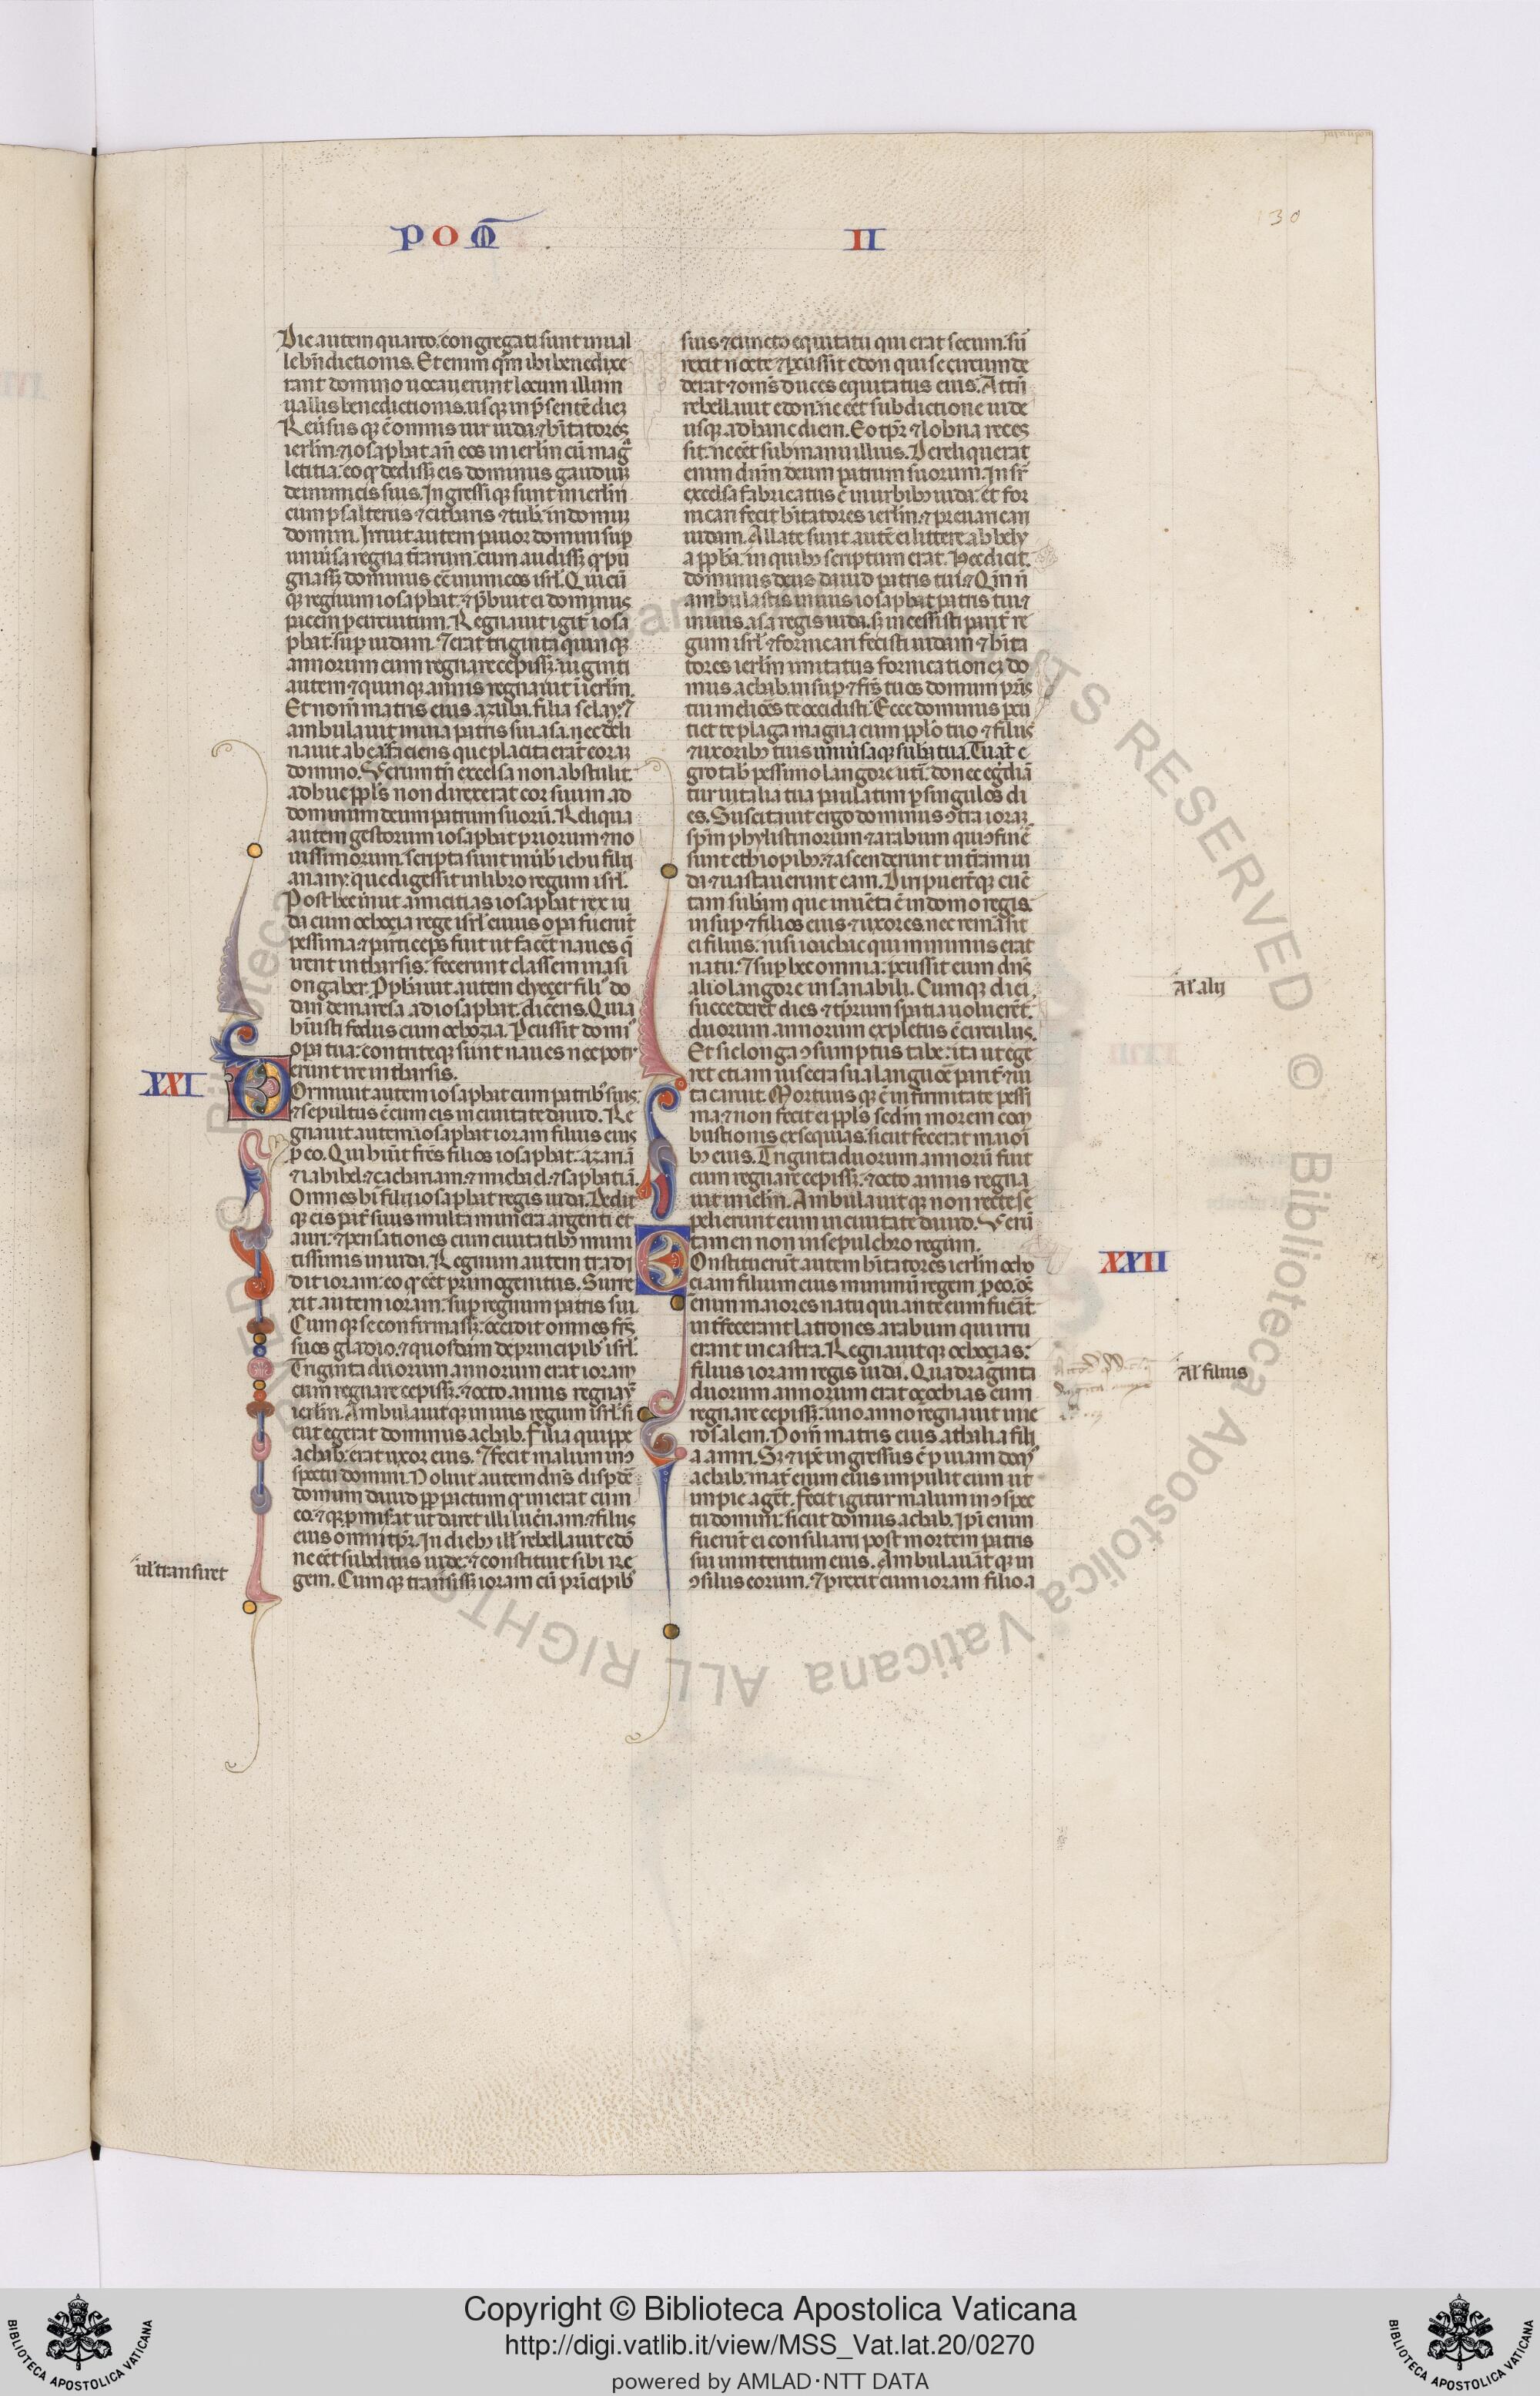 POM̃
II
30
Die autem quarto. congregati sunt in ual
le bn̄dictionis. Etenim qm̄ ibi benedixe
rant domino uocauerunt locum illum
uallis benedictionis. usq; in p̄sentē diez
Reuersus q; ē omnis uir iuda. ⁊ hitatores
ierlm̄. ⁊ iosaphat an̄ eos in ierlm̄ cū mag
letitia. eo q dedissz eis dominus gaudiuz
de inimicis suis. Ingressi q; sunt in ierlm̄
cum psalteriis ⁊ citharis ⁊ tubis in domuz
domini. Irruit autem pauor domini sup
uniu̇sa regna t̄rarum. cum audissz q pu
gnassz dominus cē inimicos isrl̄. Quieuit
q; regnum iosaphat. ⁊ p̄buit ei dominus
pacem per circuitum. Regnauit igit̄ iosa
phat. sup iudam. ⁊ erat triginta quinq;
annorum cum regnare cepissz. uiginti
autem ⁊ quinq; annis regnauit ī ierlm̄.
Et nom̄ matris eius azuba. filia selay. ⁊
ambulauit in uia patris sui asa. nec decli
nauit ab ea. faciens que placita erāt coraz
domino. Verum tn̄ excelsa non abstulit.
adhuc ppl̄s non direxerat cor suum ad
dominum deum patrum suorū. Reliqua
autem gestorum iosaphat priorum ⁊ no
uissimorum. scripta sunt in ūb iehu filij
anany. que digessit in libro regum isrl̄.
Post hec iniit amicitias iosaphat rex iu
da cum ochozia rege isrl̄ cuius opa fuerūt
pessima. ⁊ particeps fuit ut facēt naues q̄
irent in tharsis. fecerunt classem in asi
ongaber. Pph̄auit autem elyezer fili' do
dan de maresa ad iosaphat. dicēns. Quia
hūisti fedus cum ochozia. Pcussit domi'
opa tua. contriteq; sunt naues nec potu
erunt ire in tharsis.
XXI
Dormiuit autem iosaphat cum patrib' suis.
⁊ sepultus ē cum eis in ciuitate dauid. Re
gnauit autem iosaphat ioram filius eius
p eo. Qui hūit fr̄es filios iosaphat. azariā
⁊ iahihel. ⁊ zachariam. ⁊ michael. ⁊ saphatiā.
Omnes hi filij iosaphat regis iuda. Dedit
q; eis pat̄ suus multa munera argenti et
auri. ⁊ pensationes cum ciuitatib' muni
tissimis in iuda. Regnum autem tradi
dit ioram. eo q cēt primogenitus. Surre
xit autem ioram. sup regnum patris sui.
Cum q; se confirmassz. occidit omnes fr̄es
suos gladio. ⁊ quosdam de principib' isrl̄.
Triginta duorum annorum erat ioram
cum regnare cepissz. ⁊ octo annis regnaū
ierlm̄. Ambulauit q; in uiis regum isrl̄. si
cut egerat dominus achab. Filia quippe
achab. erat uxor eius. ⁊ fecit malum in ɔ
spectu domini. Noluit autem dn̄s dispdē
domum dauid pp pactum q inierat cum
eo. ⁊ q; pmis̄at ut daret illi lucn̄am. ⁊ filiis
eius omni tp̄r. In dieb' ill' rebellauit edō
ne cēt subditus iude. ⁊ constituit sibi re
ul' transiret
gem. Cum q; transissz ioram cū principib'
suis ⁊ cuncto equitatu qui erat secum. sur
rexit nocte. ⁊ pcussit edon qui se circumde
derat ⁊ om̄s duces equitatus eius. Attn̄
rebellauit edon. ne cēt sub dictione iude
usq; ad hanc diem. Eo tp̄r ⁊ lobna reces
sit. ne cēt sub manu illius. Dereliquerat
enim dn̄m deum patrum suorum. Insr̄
excelsa fabricatus ē in urbib' iuda. et for
nicari fecit hitatores ierlm̄. ⁊ preuaricari
iudam. Allate sunt autē ei littere ab hely
a pph̄a. in quib' scriptum erat. Hec dicit.
dominus deus dauid patris tui. Qm̄ n̄
ambulastis in uiis iosaphat patris tui ⁊
in uiis asa regis iuda. s; incessisti parit̄ re
gum isrl̄ ⁊ fornicari fecisti iudam ⁊ hita
tores ierlm̄ imitatus fornicationez do
mus achab. insup ⁊ fr̄es tuos domum pr̄is
tui meliōes te occidisti. Ecce dominus pcu
tiet te plaga magna cum ppl̄o tuo. ⁊ filiis
⁊ uxorib' tuis uniu̇saq; sub̄a tua. Tu aūt e
grotab' pessimo langore utī. donec egrediā
tur uitalia tua paulatim p singulos di
es. Suscitauit ergo dominus ɔtra ioraz
spm̄ phylistinorum ⁊ arabum qui ɔfines
sunt ethiopib'. ⁊ ascenderunt in t̄ram iu
da. ⁊ uastauerunt eam. Diripuert̄q; cunc
tam sub̄am que inuēta ē in domo regis.
insup ⁊ filios eius ⁊ uxores. nec remāsit
ei filius. nisi ioachac qui minimus erat
natu. ⁊ sup hec omnia. pcussit eum dn̄s
alio langore insanabili. Cumq; diei
Al' alij
succederet dies. ⁊ tp̄rum spatia uoluerēt.
duorum annorum expletus ē circulus.
Et sic longa ɔsumptus tabe. ita ut ege
ret etiam uiscera sua. languōe parit̄ ⁊ ui
ta caruit. Mortuus q; ē in firmitate pessi
ma. ⁊ non fecit ei ppl̄s sedm̄ morem com
bustionis exsequias. sicut fecerat maiori
b' eius. Triginta duorum annorū fuit
cum regnare cepissz. ⁊ octo annis regna
uit in ierlm̄. Ambulauit q; non recte. se
pelierunt eum in ciuitate dauid. Verū
tamen non in sepulchro regum.
XXII
Constituerūt autem hitatores ierlm̄ ocho
ziam filium eius minimū regem. p eo. oēs
enim maiores natu qui ante eum fuerāt
int̄fecerant latrones arabum qui irru
erant in castra. Regnauit q; ochozias.
filius ioram regis iuda. Quadraginta
Al' filius
duorum annorum erat ochozias cum
regnare cepissz. uno anno regnauit in ie
rosalem. Nom̄ matris eius athalia fili
a amri. S; ⁊ ipē ingressus ē p uiam dom'
achab. mat̄ enim eius impulit eum ut
impie agēt. fecit igitur malum in ɔspec
tu domini. sicut domus achab. Ipi enim
fuerūt ei consiliarij post mortem patris
sui in intentum eius. Ambulauāt q; in
ɔsiliis eorum. ⁊ prexit cum ioram filio a
Copyright © Biblioteca Apostolica Vaticana
http://digi.vatlib.it/view/MSS_Vat.lat.20/0270
powered by AMLAD·NTT DATA
BIBLIOTECA APOSTOLICA VATICANA
BIBLIOTECA APOSTOLICA VATICANA